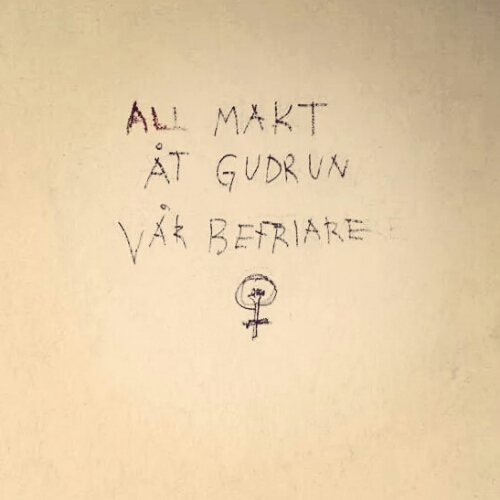 ALL MAKT
ÅT GUDRUN
VÅR BEFRIARE